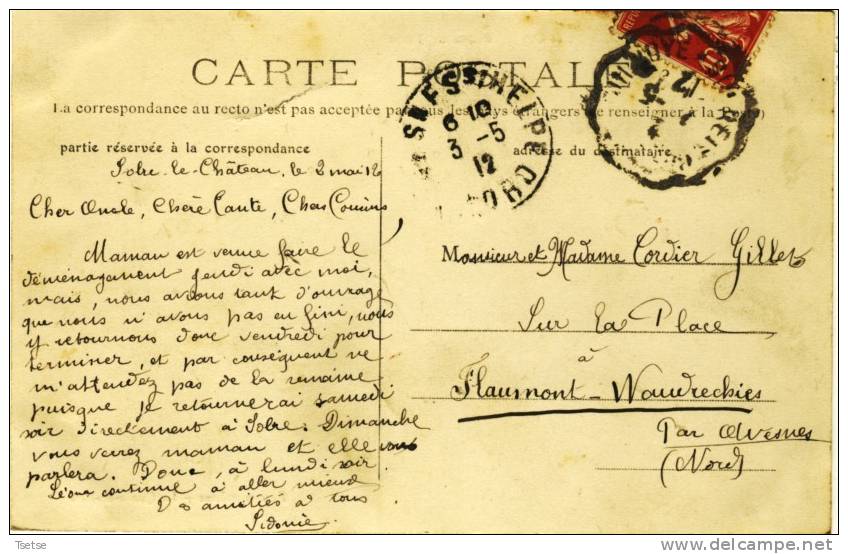 CARTE POSTALE
La correspondance au recto n'est pas acceptée par tous les pays étrangers (se renseigner à la Poste)
partie réservée à la correspondance
adresse du destinataire
Solre-le-Château, le 2 mai 12
Cher Oncle, Chère Tante, Chers Cousins
Maman est venue faire le
déménagement jeudi avec moi,
mais, nous avions tant d'ouvrage
que nous n'avons pas eu fini, nous
y retournons donc vendredi pour
terminer, et par conséquent ne
m'attendez pas de la semaine
puisque je retournerai samedi
soir directement à Solre. Dimanche
vous verrez maman et elle vous
parlera. Donc, à lundi soir
Léon continue à aller mieux
amitiés à tous
Sidonie
Monsieur et Madame Cordier Gillet
Sur la Place
à
Flaumont-Waudrechies
Par Avesnes
(Nord)
S'HELPE
6 10
3 -5
12
NORD
Tsetse
delcampe.net